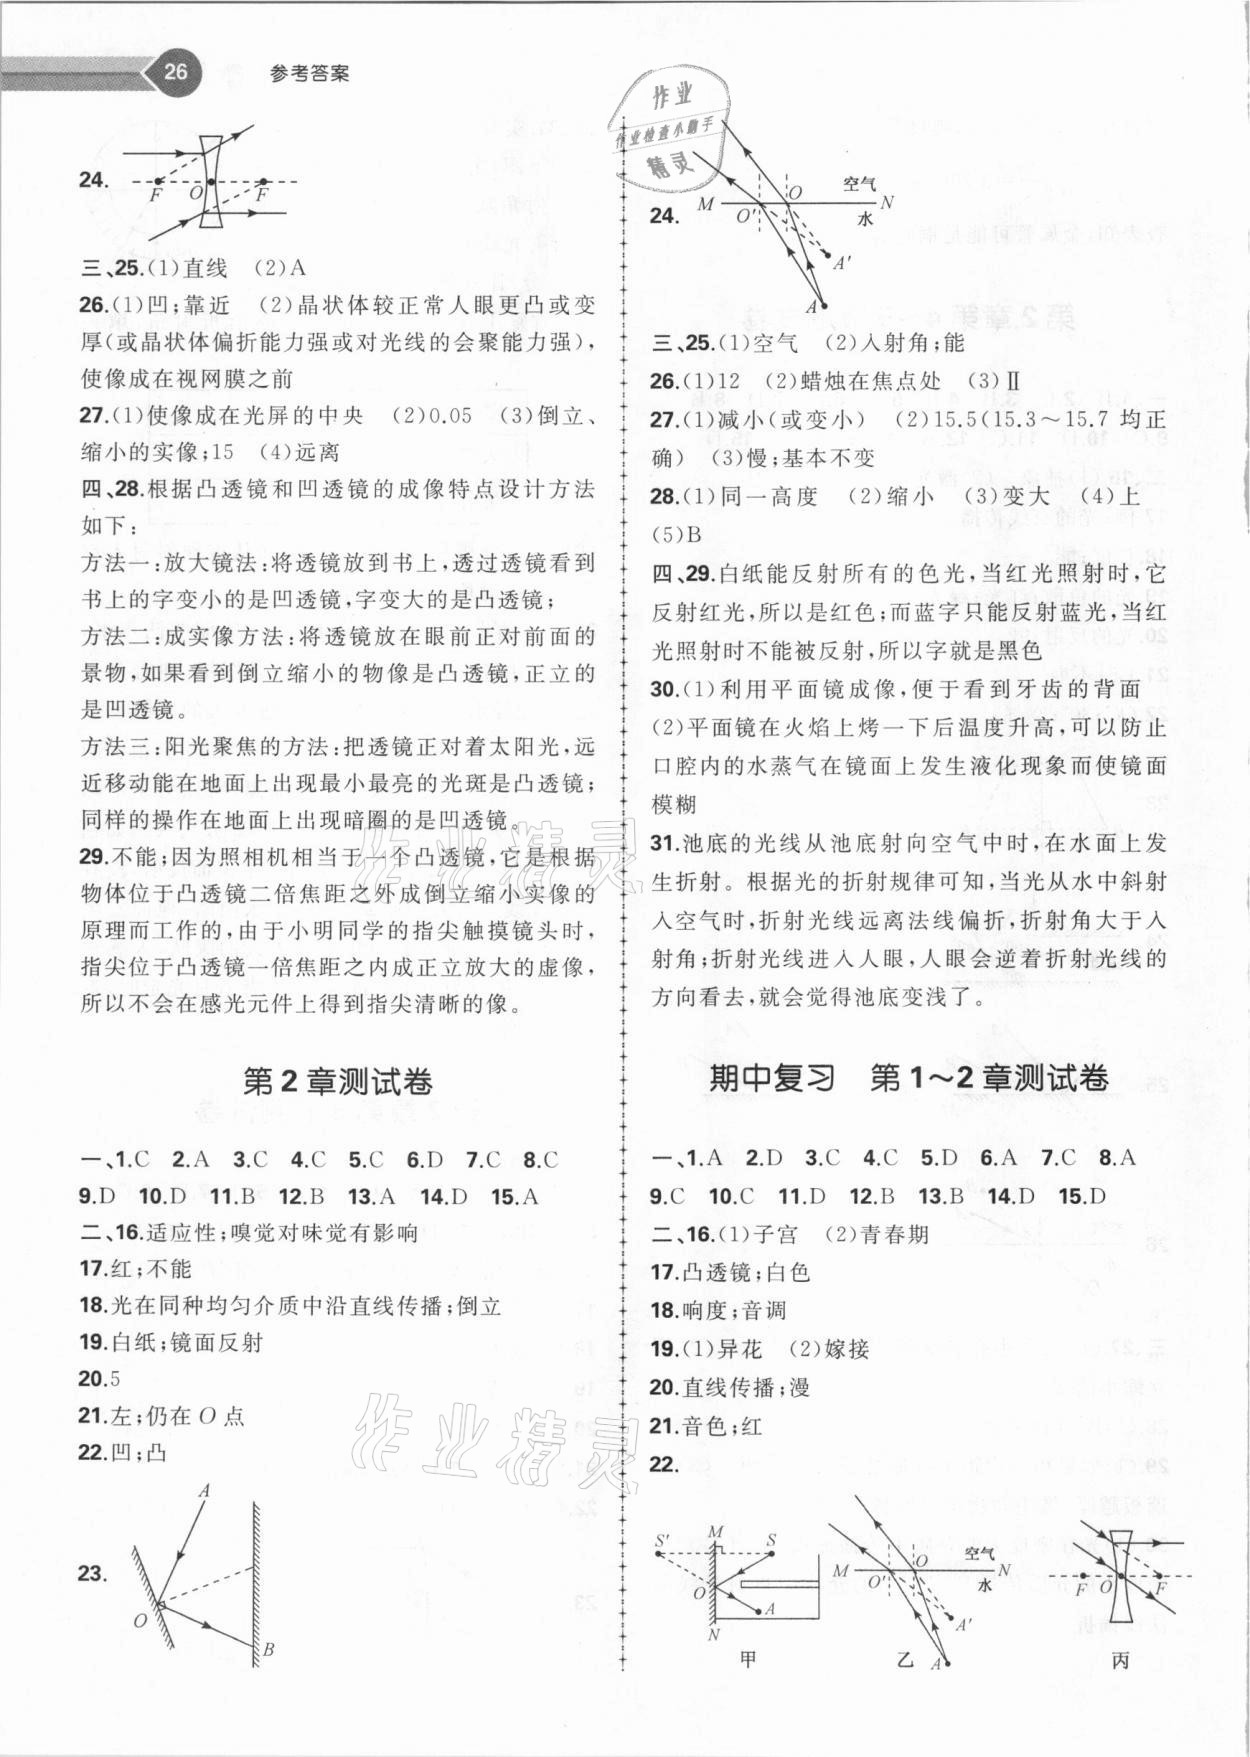 26 参考答案
24.
F O F
三、25.(1)直线 (2)A
26.(1)凹;靠近 (2)晶状体较正常人眼更凸或变
厚(或晶状体偏折能力强或对光线的会聚能力强),
使像成在视网膜之前
27.(1)使像成在光屏的中央 (2)0.05 (3)倒立、
缩小的实像;15 (4)远离
四、28.根据凸透镜和凹透镜的成像特点设计方法
如下:
方法一:放大镜法:将透镜放到书上,透过透镜看到
书上的字变小的是凹透镜,字变大的是凸透镜;
方法二:成实像方法:将透镜放在眼前正对前面的
景物,如果看到倒立缩小的物像是凸透镜,正立的
是凹透镜。
方法三:阳光聚焦的方法:把透镜正对着太阳光,远
近移动能在地面上出现最小最亮的光斑是凸透镜;
同样的操作在地面上出现暗圈的是凹透镜。
29.不能;因为照相机相当于一个凸透镜,它是根据
物体位于凸透镜二倍焦距之外成倒立缩小实像的
原理而工作的,由于小明同学的指尖触摸镜头时,
指尖位于凸透镜一倍焦距之内成正立放大的虚像,
所以不会在感光元件上得到指尖清晰的像。
第2章测试卷
一、1.C 2.A 3.C 4.C 5.C 6.D 7.C 8.C
9.D 10.D 11.B 12.B 13.A 14.D 15.A
二、16.适应性;嗅觉对味觉有影响
17.红;不能
18.光在同种均匀介质中沿直线传播;倒立
19.白纸;镜面反射
20.5
21.左;仍在O点
22.凹;凸
23.
A
O
B
作业
作业检查小助手
精灵
24.
M O' O 空气 N
水
A'
A
三、25.(1)空气 (2)入射角;能
26.(1)12 (2)蜡烛在焦点处 (3)Ⅱ
27.(1)减小(或变小) (2)15.5(15.3～15.7 均正
确) (3)慢;基本不变
28.(1)同一高度 (2)缩小 (3)变大 (4)上
(5)B
四、29.白纸能反射所有的色光,当红光照射时,它
反射红光,所以是红色;而蓝字只能反射蓝光,当红
光照射时不能被反射,所以字就是黑色
30.(1)利用平面镜成像,便于看到牙齿的背面
(2)平面镜在火焰上烤一下后温度升高,可以防止
口腔内的水蒸气在镜面上发生液化现象而使镜面
模糊
31.池底的光线从池底射向空气中时,在水面上发
生折射。根据光的折射规律可知,当光从水中斜射
入空气时,折射光线远离法线偏折,折射角大于入
射角;折射光线进入人眼,人眼会逆着折射光线的
方向看去,就会觉得池底变浅了。
期中复习 第1～2章测试卷
一、1.A 2.D 3.C 4.C 5.D 6.A 7.C 8.A
9.C 10.C 11.D 12.B 13.B 14.D 15.D
二、16.(1)子宫 (2)青春期
17.凸透镜;白色
18.响度;音调
19.(1)异花 (2)嫁接
20.直线传播;漫
21.音色;红
22.
S' M S
O A
N
甲
M O' O 空气 N
水
A'
A
乙
F O F
丙
作业精灵
作业精灵